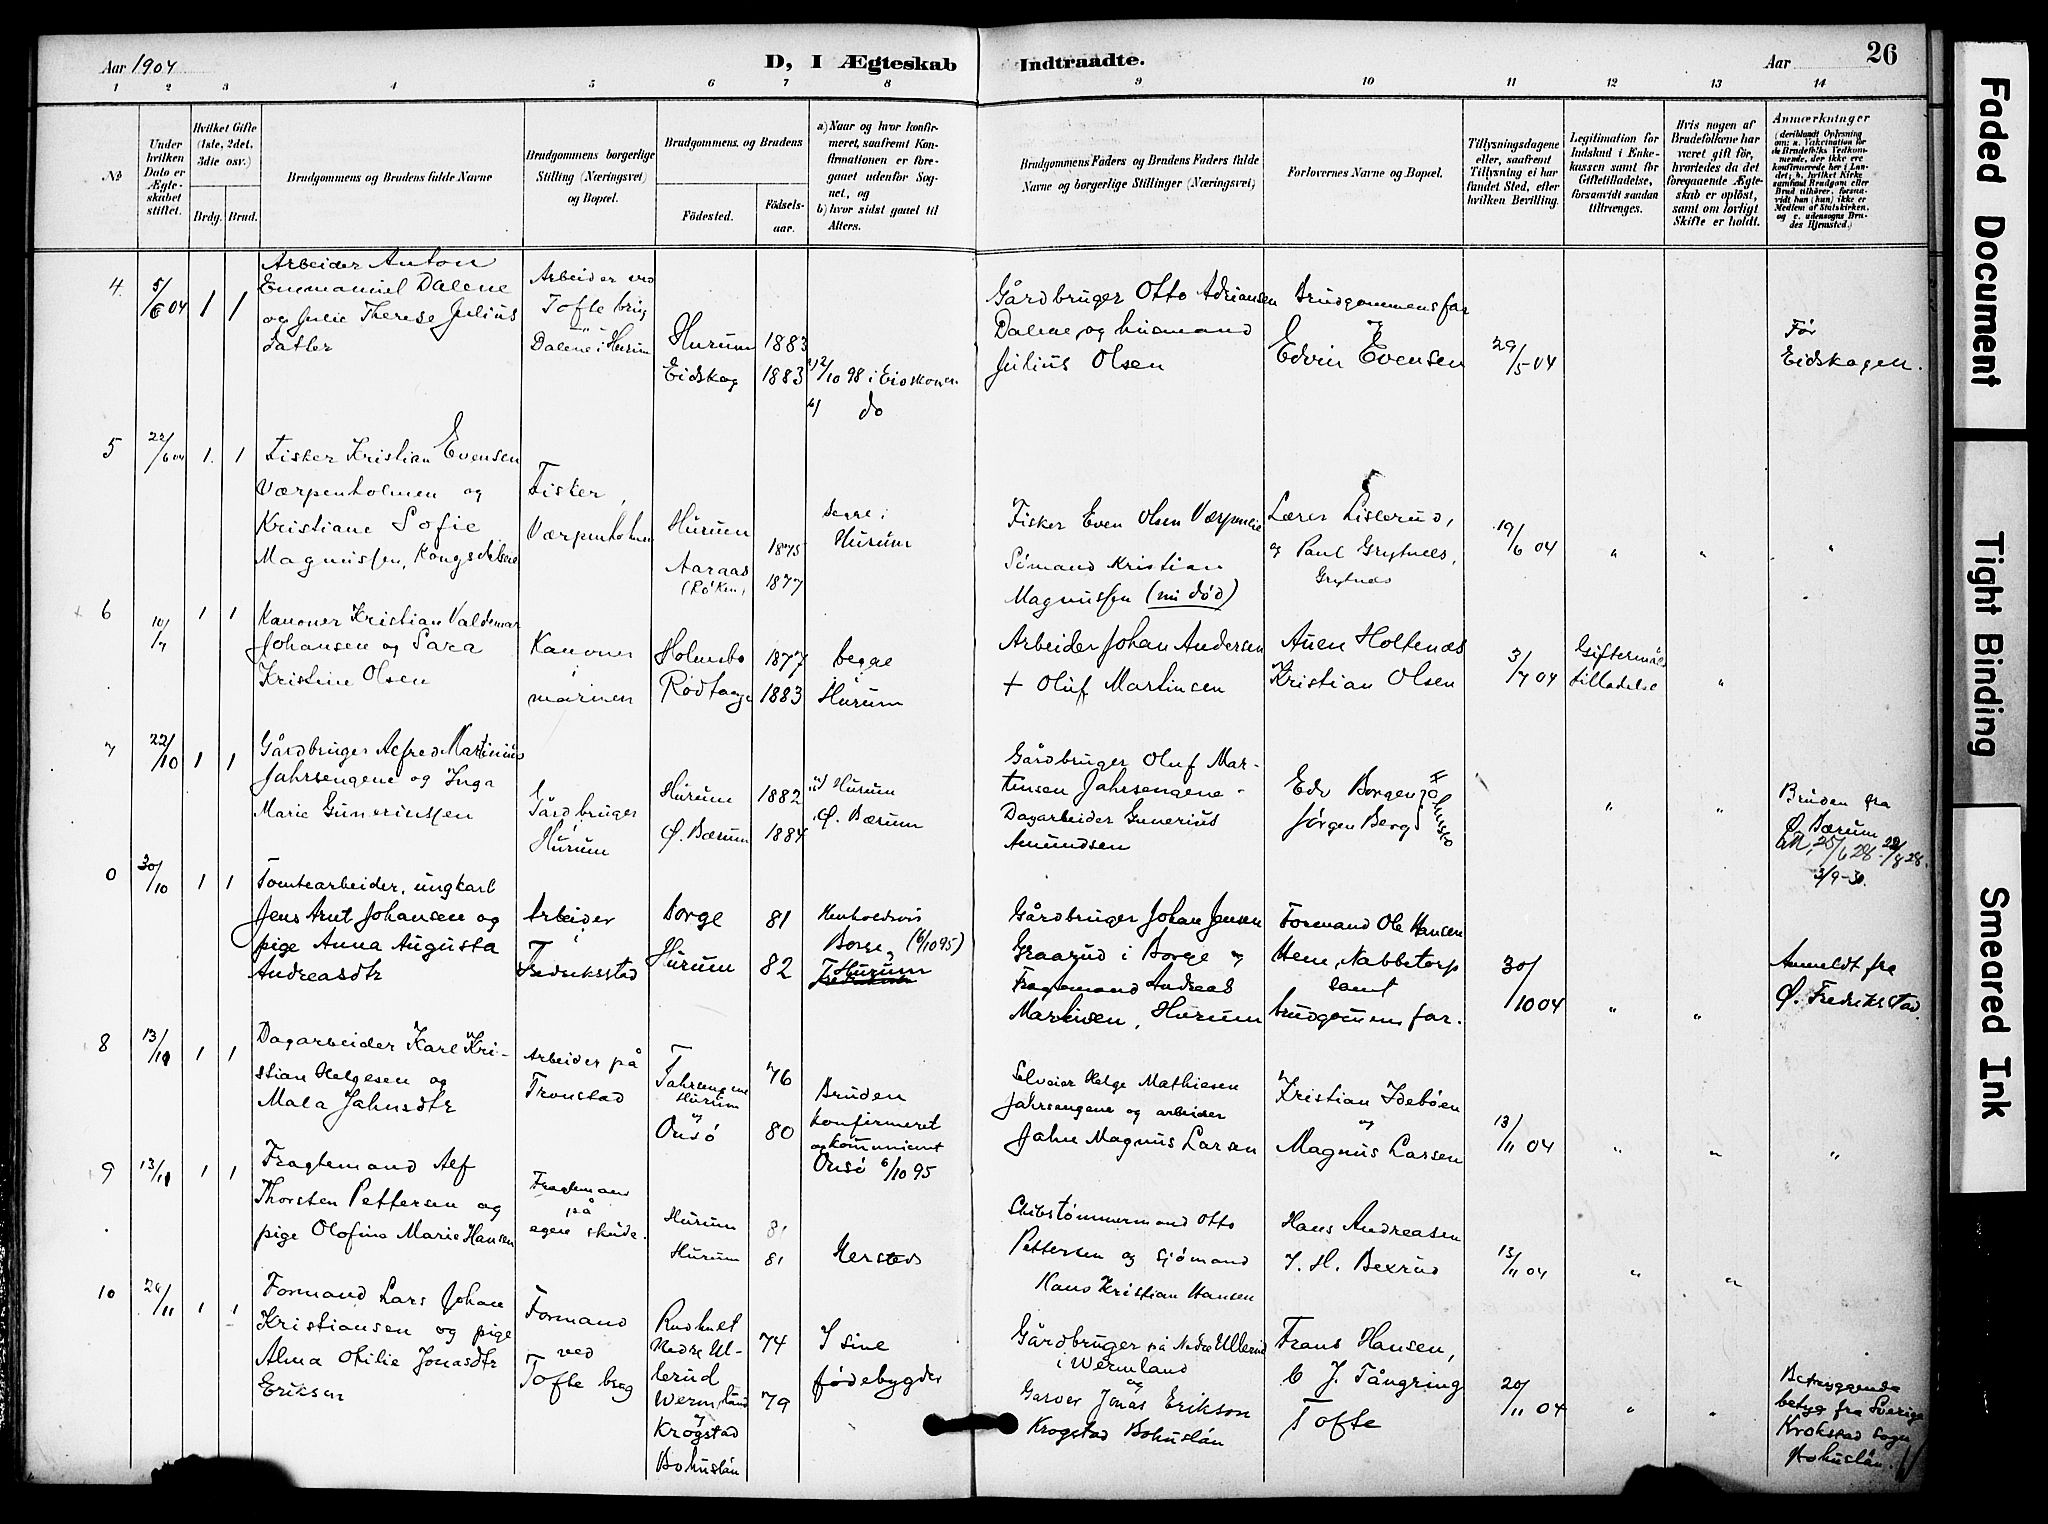 Aar 1904
D, I Ægteskab Indtraadte.
Aar
26
1 2 3 4 5 6 7 8 9 10 11 12 13 14
No
Under hvilken Dato er Ægteskabet stiftet.
Hvilket Gifte (1ste, 2det, 3die osv.)
Brdg. Brud.
Brudgommens og Brudens fulde Navne
Brudgommens borgerlige Stilling (Næringsvei) og Bopæl.
Brudgommens og Brudens
Fødested.
Fødsels-aar.
a) Naar og hvor konfirmeret, saafremt Konfirmationen er foregaaet udenfor Sognet, og
b) hvor sidst gaaet til Alters.
Brudgommens Faders og Brudens Faders fulde Navne og borgerlige Stillinger (Næringsvei)
Forlovernes Navne og Bopæl.
Tillysningsdagene eller, saafremt Tillysning ei har fundet Sted, efter hvilken Bevilling.
Legitimation for Indskud i Enkekassen samt for Giftetilladelse, forsaavidt saadan tiltrænges.
Hvis nogen af Brudefolkene har været gift før, hvorledes da det foregaaende Ægteskab er opløst, samt om lovligt Skifte er holdt.
Anmerkninger
4. 5/6 04 1 1
Arbeider Anton
Emmanuel Dalene
og Julie Therese Julius
datter
Arbeider ved
Tofte brug
Dalene i Hurum
Hurum 1883
Eidskog 1883
a) 2/10 98 i Eidskogen
b) do
Gårdbruger Otto Adriansen
Dalene, og husmand
Julius Olsen
Brudgommens far
Edvin Evensen
29/5-04
Før
Eidskogen.
5 22/6 04 1. 1
Fisker Kristian Evensen
Værpenholmen og
Kristiane Sofie
Magnussen, Kongsdelene
Fisker,
Værpenholmen
Hurum 1875
Aaraas 1877
(Røken)
begge i
Hurum
Fisker Even Olsen Værpen
Sømand Kristian
Magnussen (nu død)
Lærer Lillerud,
og Paul Grytnes,
Grytnes
19/6 04 " " "
6 10/7 1 1
Kanoner Kristian Valdemar
Johansen og Sara
Kristine Olsen
Kanoner
i
marinen
Holmsbo 1877
Rødtange 1883
begge
i
Hurum
Arbeider Johan Andersen
+ Oluf Martinsen
Auen Holtenæs
Kristian Olsen
3/7 04
Giftermåls
tilladelse
"
7 22/10 1 1
Gårdbruger Alfred Martinius
Jahrsengene og Inga
Marie Gunerinssen
Gårdbruger
i
Hurum
Hurum 1882
Ø. Bærum 1884
Hurum
Ø. Bærum
Gårdbruger Oluf Mar-
tinsen Jahrsengene -
Dagarbeider Gunerius
Amundsen
Edv Borgen
Jørgen Berg
" "
Bruden fra
Ø. Bærum
25/6 28. 22/8 28.
3/9-30.
0 30/10 1 1
Tomtearbeider, ungkarl
Jens Arnt Johansen og
pige Anna Augusta
Andreasdtr
Arbeider
i
Fredriksstad
Borge 81
Hurum 82
Henholdsvis
Borge, (6/10 95)
Hurum
Gårdbruger Johan Jensen
Graarud i Borge og
Fragtemand Andreas
Martinsen, Hurum
Formand Ole Hansen
Hem, Nabbetorp
samt
brudgommens far.
30/10 04 " "
Anmeldt fra
Ø. Fredriksstad.
8 13/11 1 1
Dagarbeider Karl Kri-
stian Helgesen og
Mala Jahnsdtr
Arbeider på
Tronstad
Jahrengene 76
Hurum
og
Onsø 80
Bruden
konfirmeret
og kommunicent
Onsø 6/10 95
Selveier Helge Mathiesen
Jahrsengene og arbeider
Jahn Magnus Larsen
Kristian Idebøen
og
Magnus Larsen
13/11 04 " " "
9 13/11 1 1
Fragtemand Alf
Thorsten Pettersen og
pige Olofine Marie Hansen
Fragtemand
på
egen skude.
Hurum 81
Hurum 81
Hersteds
Skibstømmermand Otto
Pettersen og Sjømand
Hans Kristian Hansen
Hans Andreasen
J. H. Bexrud
13/11 04 " "
10 20/11 1 1
Formand Lars Johan
Kristiansen og pige
Alma Otilie Jonasdtr
Eriksen
Formand
ved
Tofte brug
Rudhult 74
Nedre Ul-
lerud
Wermland 79
og
Krogstad
Bohuslän
I sine
fødebygder
Gårdbruger på Nedre Ullerud
i Wermland
og
Garver Jonas Erikson
Krogstad Bohuslän
Frans Hansen,
C J. Tångring
Tofte
20/11 04 " "
Betryggende
betyg fra Sverige
Krokstad Sogn
Bohuslän.
Faded Document
Tight Binding
Smeared Ink